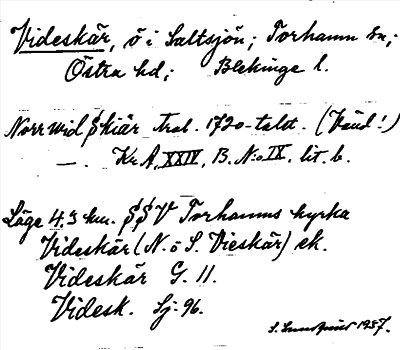 Videskär, ö i Saltsjön; Torhamn sn;
Östra hd; Blekinge l.
Norr wid Skiär Trol. 1720-talet. (Vänd!)
— . Kr. A, XXIV, B. N:o IX. lit. b.
Läge 4.3 km. SSV Torhamns kyrka
Videskär (N. o S. Vieskär) ek.
Videskär G. 11.
Videsk. Sj. 96.
1937.